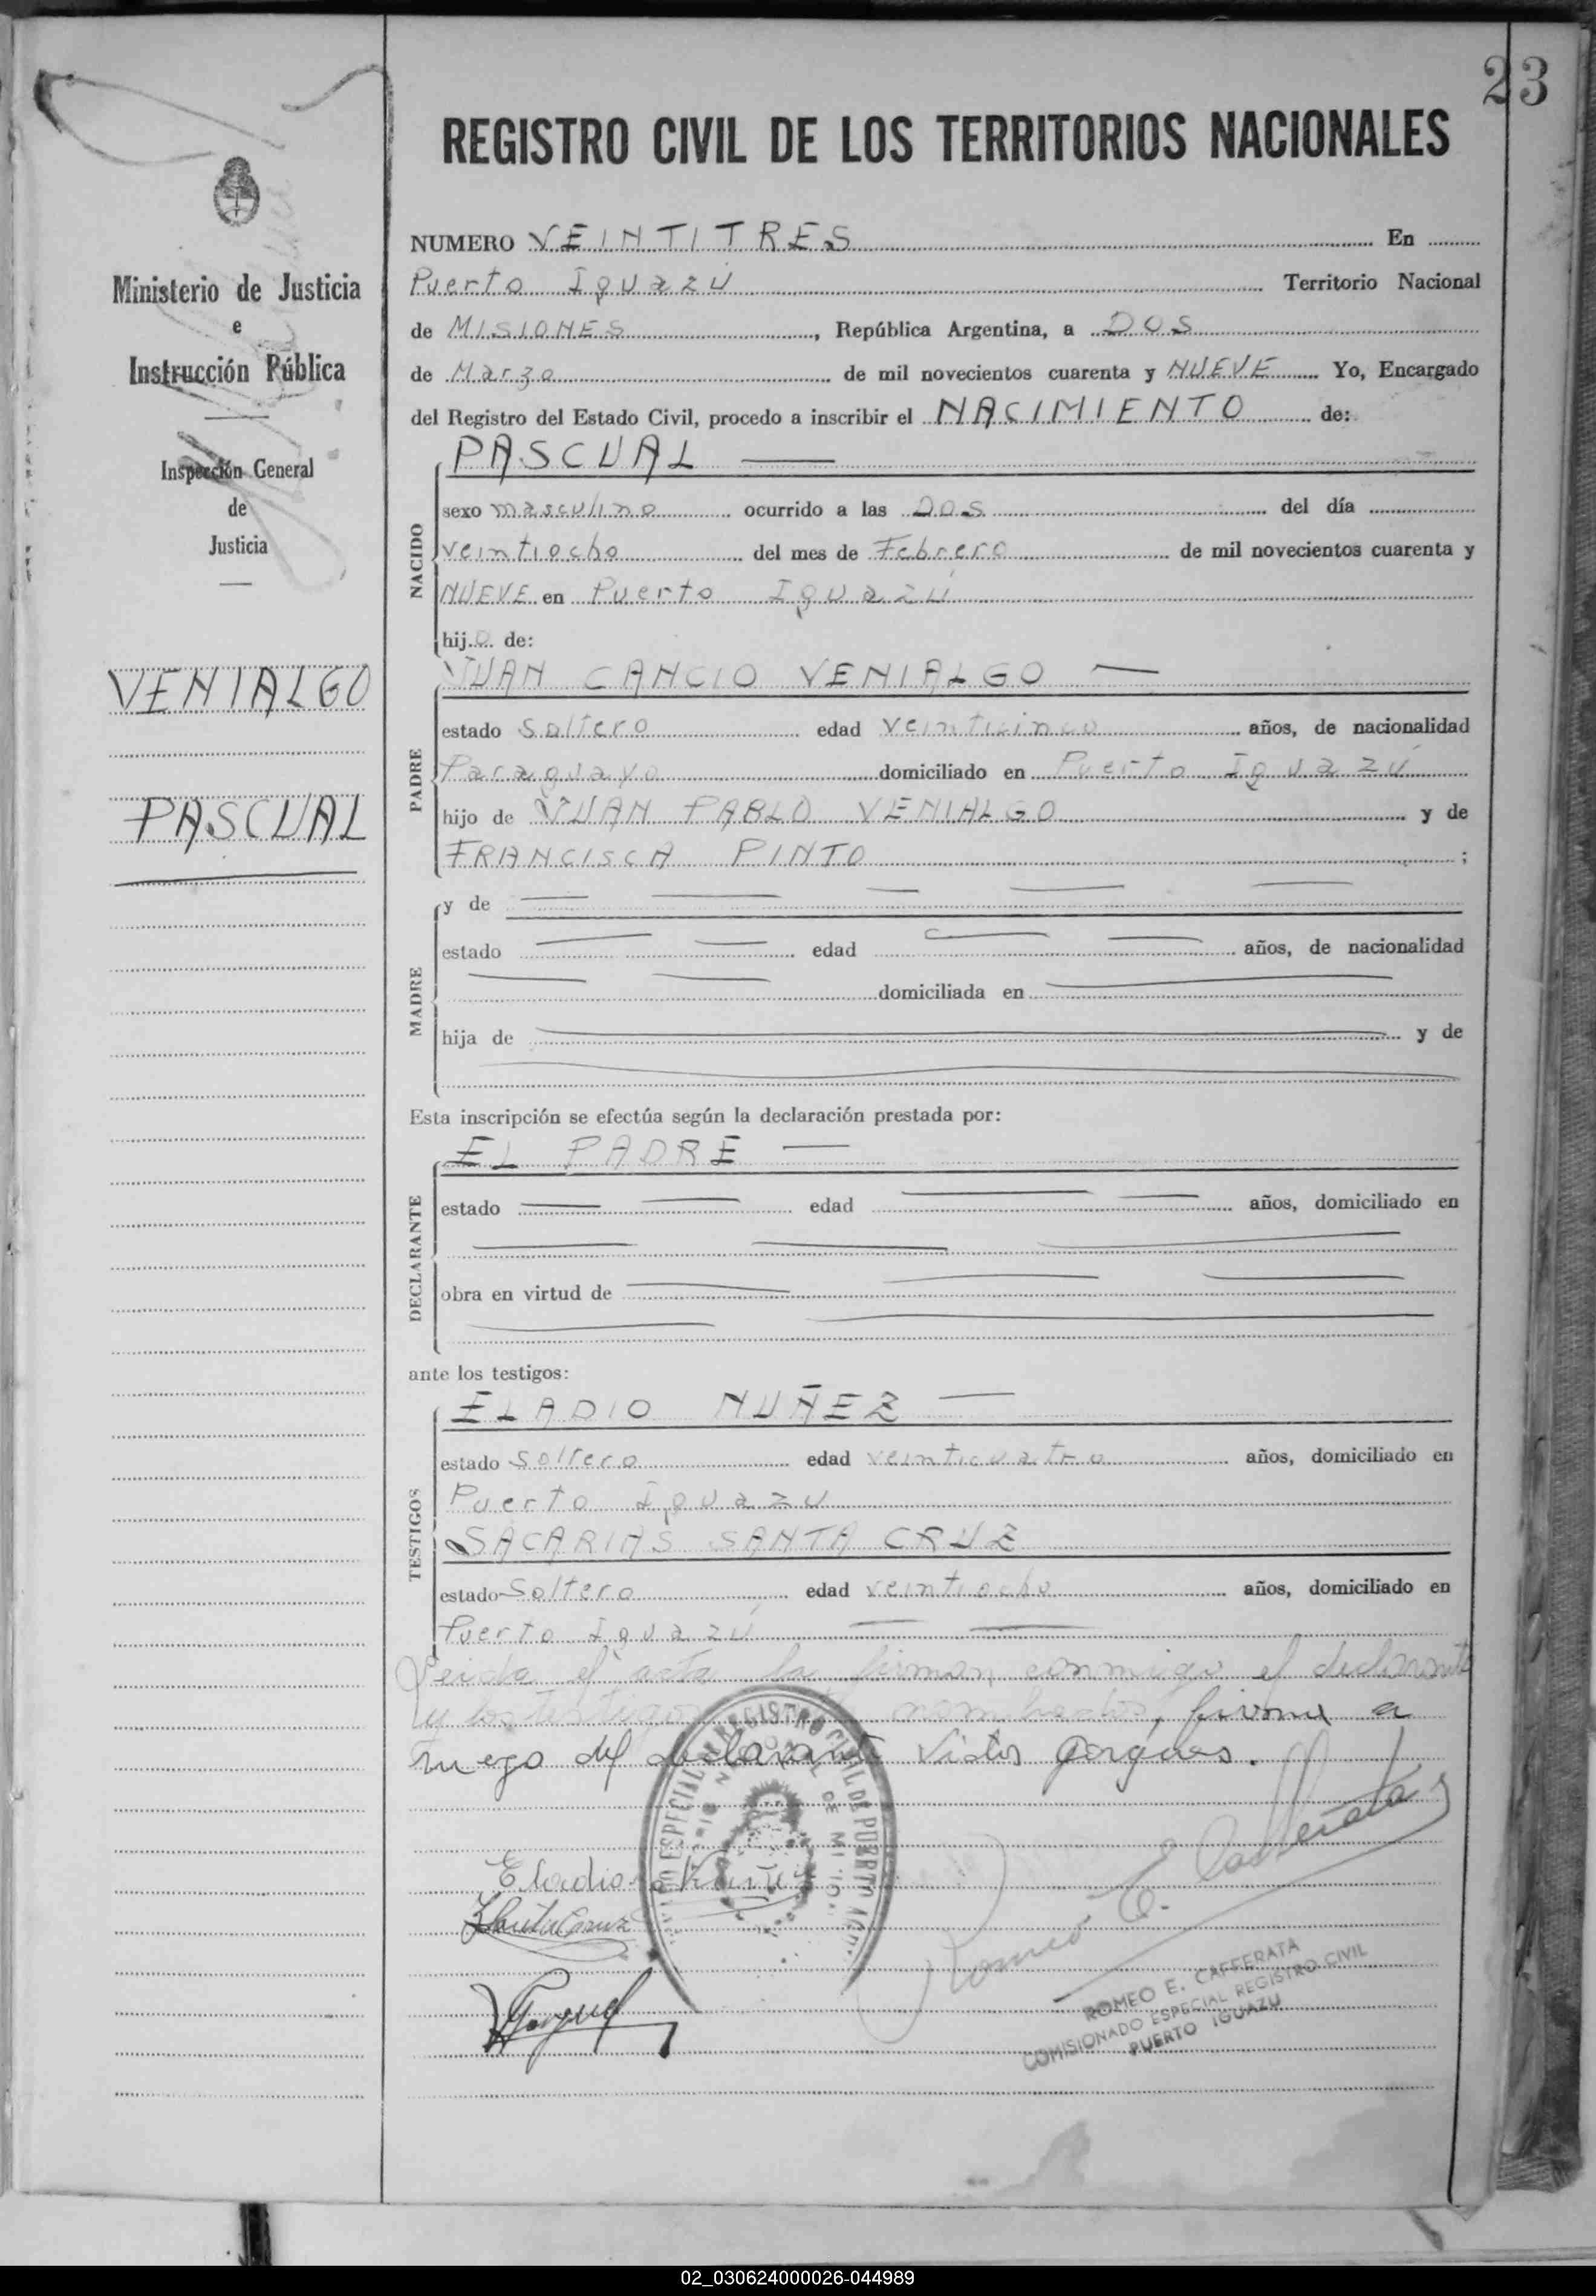 23
REGISTRO CIVIL DE LOS TERRITORIOS NACIONALES
Ministerio de Justicia
e
Instrucción Pública
Inspección General
de
Justicia
VENIALGO
PASCUAL
NUMERO VEINTITRES En
Puerto Iguazú Territorio Nacional
de MISIONES, República Argentina, a DOS
de Marzo de mil novecientos cuarenta y NUEVE Yo, Encargado
del Registro del Estado Civil, procedo a inscribir el NACIMIENTO de:
NACIDO
PASCUAL
sexo masculino ocurrido a las DOS del día
veintiocho del mes de Febrero de mil novecientos cuarenta y
NUEVE en Puerto Iguazú
hijo de:
PADRE
JUAN CANCIO VENIALGO
estado soltero edad veinticinco años, de nacionalidad
Paraguayo domiciliado en Puerto Iguazú
hijo de JUAN PABLO VENIALGO y de
FRANCISCA PINTO ;
MADRE
y de
estado edad años, de nacionalidad
domiciliada en
hija de y de
Esta inscripción se efectúa según la declaración prestada por:
DECLARANTE
EL PADRE
estado edad años, domiciliado en
obra en virtud de
ante los testigos:
TESTIGOS
ELADIO NUÑEZ
estado soltero edad veinticuatro años, domiciliado en
Puerto Iguazú
SACARIAS SANTA CRUZ
estado Soltero edad veintiocho años, domiciliado en
Puerto Iguazú
Leida el acta la firman conmigo el declarante
y los testigos nombrados, firma a
ruego del declarante
Eladio Nuñez
ZSantaCruz
Romeo E. Cafferata
ROMEO E. CAFFERATA
COMISIONADO ESPECIAL REGISTRO CIVIL
PUERTO IGUAZU
02_030624000026-044989